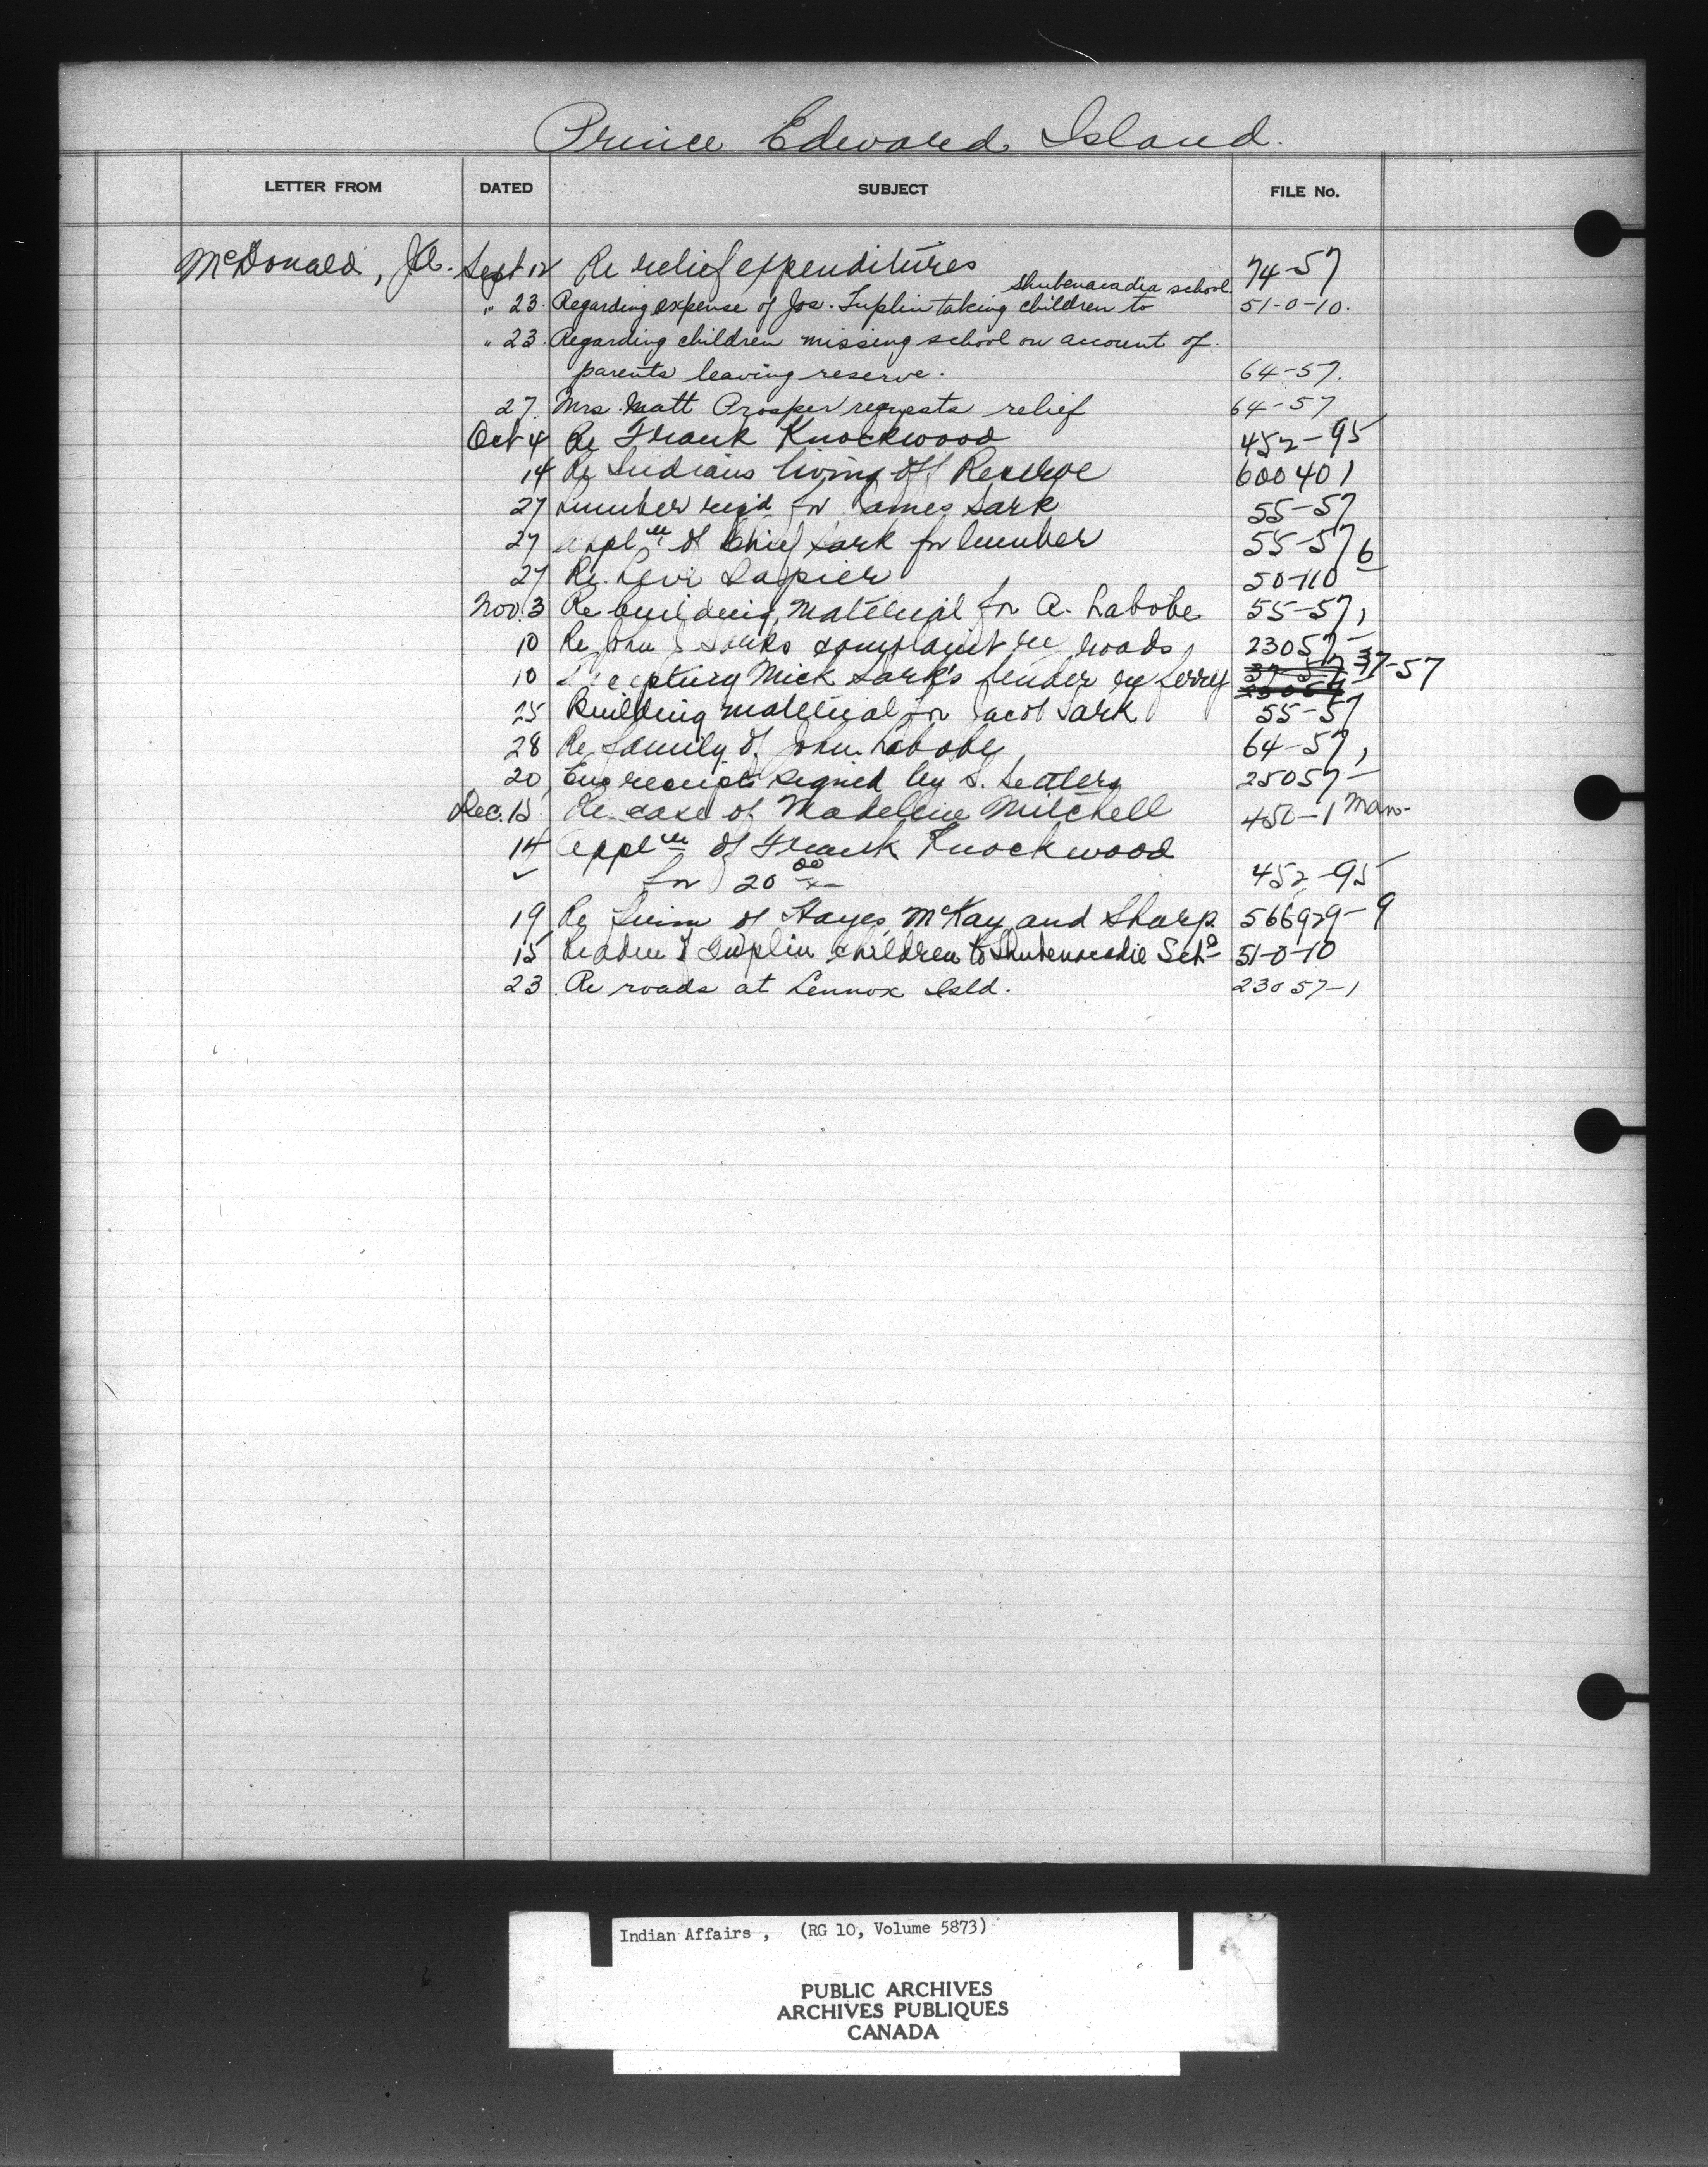 Prince Edward Island.
LETTER FROM DATED SUBJECT FILE No.
McDonald, J.A. Sept 12 Re relief expenditures 74-57
Shubenacadia school.
" 23. Regarding expense of Jos. Tuplin taking children to 51-0-10.
" 23. Regarding children missing school on account of
parents leaving reserve. 64-57.
27. Mrs. Matt Prosper requests relief 64-57
Oct 4 Re Frank Knockwood 452-95
14 Re Indians living off Reserve 600401
27 Lumber reqd for James Sark 55-57
27 Appln of Chief Sark for lumber 55-57
27 Re. Levi Lapier 50-110 6
Nov. 3 Re building material for A. Labobe 55-57,
10 Re John J Sarks complaint re roads, 23057-1
10 Accepting Mick Sark's tender re ferry 37-57
25 Building material for Jacob Sark 55-57
28 Re family of John Labobe 64-57,
20 Enc receipts signed by S. Settlers 25057-
Dec. 15 Re case of Madeline Mitchell 450-1 Man-
14 Appln of Frank Knockwood
✓ for 20 00/xx 452-95
19 Re firm of Hayes, McKay and Sharp 566929-9
15 of Tuplin children to Shubenacadie Schl 51-0-10
23 Re roads at Lennox Isld. 23057-1
Indian Affairs , (RG 10, Volume 5873)
PUBLIC ARCHIVES
ARCHIVES PUBLIQUES
CANADA